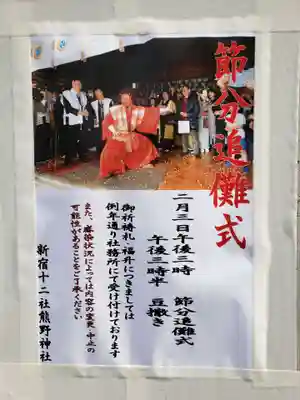 節分追儺式
二月三日午後三時　節分追儺式
午後三時半　豆撒き
御祈祷札・福升につきましては
例年通り社務所にて受け付けております
また、感染状況によっては内容の変更・中止の
可能性があることをご了承ください
新宿十二社熊野神社